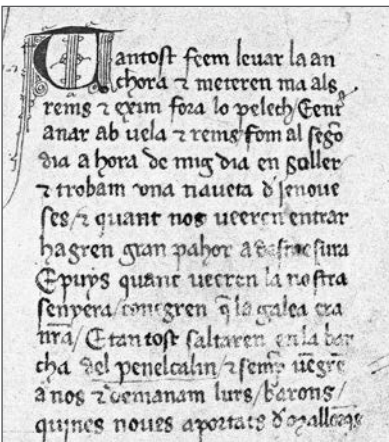 antost feem leuar la an
chora ⁊ meteren ma als
rems ⁊ exim fora lo pelech/ E enr̃
anar ab uela ⁊ rems fom al sego
dia a hora de mig dia en soller
⁊ trobam vna naueta d ienoue
ses/ ⁊ quant nos veeren entrar
hagren gran pahor a
E puys quant veeren la nostra
senyera/ conegren q̃ la galea era
nr̃a/ E tantost saltaren en la bar
cha del penelcalm/ ⁊ uẽgrẽ
a nos ⁊ demanam lurs/ barons/
quines noues aportats d mallorqs